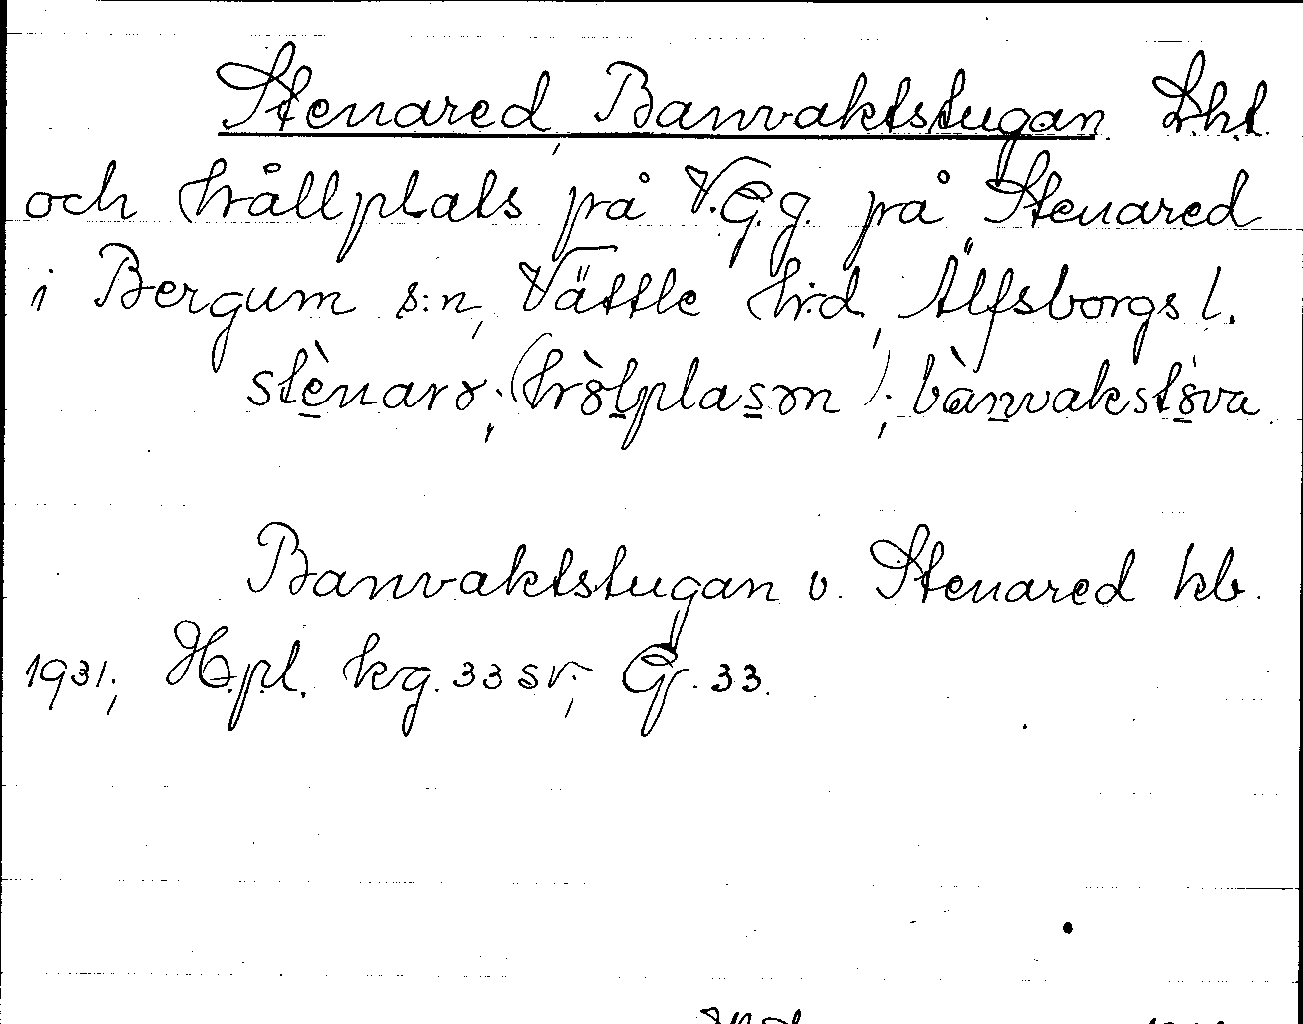 Stenared, Banvaktstugan. Lht.
och hållplats på V.G.g. på Stenared
i Bergum s:n, Vättle h:d, Älfsborgs l.
stènarɤ; (hɤ̀lplasɤn); bànvakstɤ̀va.
Banvaktstugan v. Stenared kb.
1931; H.pl. kg. 33 sv; G. 33.